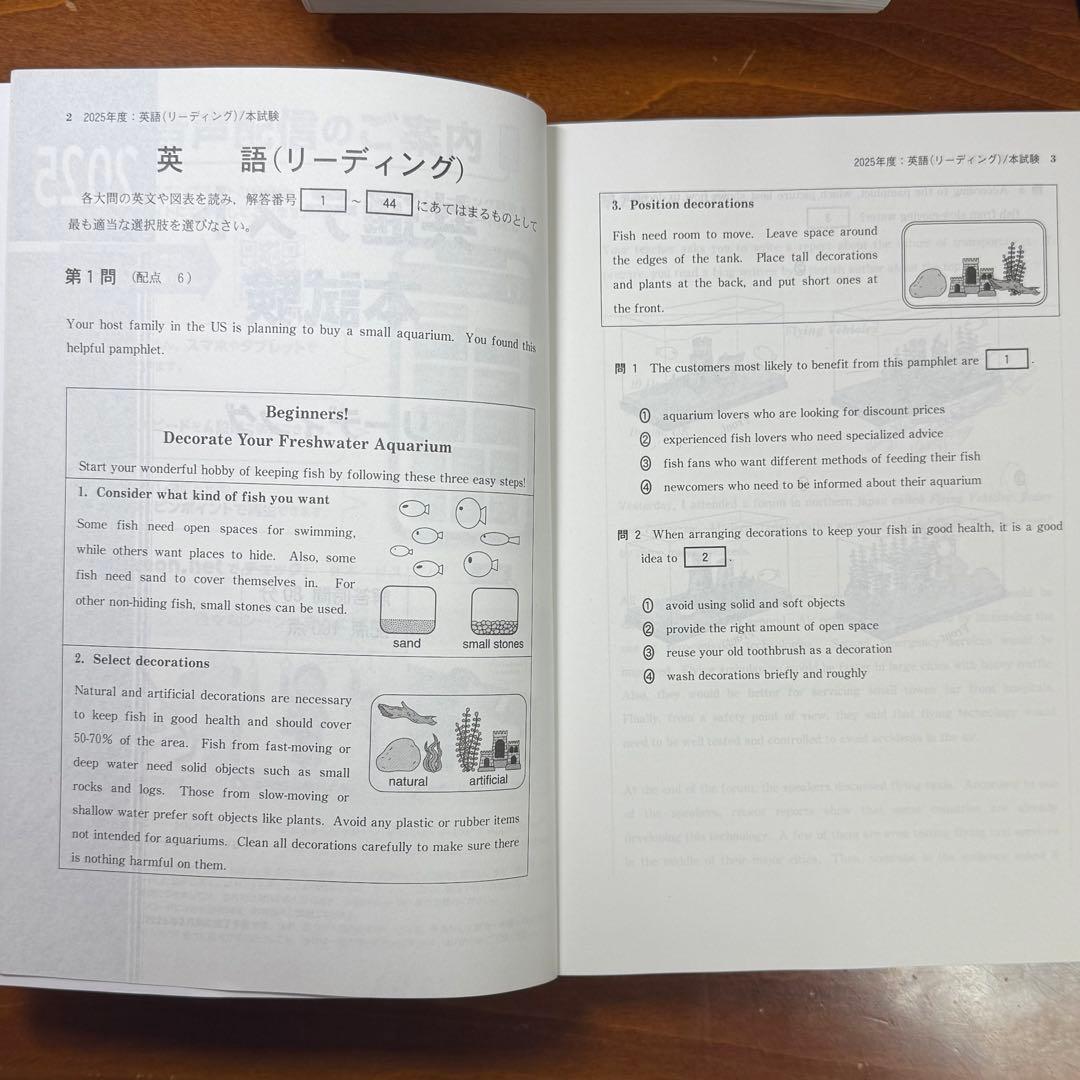 2 2025年度:英語(リーディング)/本試験
英 語(リーディング)
各大問の英文や図表を読み,解答番号 1 ~ 44 にあてはまるものとして
最も適当な選択肢を選びなさい。
第1問 (配点 6)
Your host family in the US is planning to buy a small aquarium. You found this
helpful pamphlet.
Beginners!
Decorate Your Freshwater Aquarium
Start your wonderful hobby of keeping fish by following these three easy steps!
1. Consider what kind of fish you want
Some fish need open spaces for swimming,
while others want places to hide. Also, some
fish need sand to cover themselves in. For
other non-hiding fish, small stones can be used.
sand small stones
2. Select decorations
Natural and artificial decorations are necessary
to keep fish in good health and should cover
50-70% of the area. Fish from fast-moving or
deep water need solid objects such as small
rocks and logs. Those from slow-moving or
shallow water prefer soft objects like plants. Avoid any plastic or rubber items
not intended for aquariums. Clean all decorations carefully to make sure there
is nothing harmful on them.
natural artificial
2025年度:英語(リーディング)/本試験 3
3. Position decorations
Fish need room to move. Leave space around
the edges of the tank. Place tall decorations
and plants at the back, and put short ones at
the front.
問1 The customers most likely to benefit from this pamphlet are 1 .
① aquarium lovers who are looking for discount prices
② experienced fish lovers who need specialized advice
③ fish fans who want different methods of feeding their fish
④ newcomers who need to be informed about their aquarium
問2 When arranging decorations to keep your fish in good health, it is a good
idea to 2 .
① avoid using solid and soft objects
② provide the right amount of open space
③ reuse your old toothbrush as a decoration
④ wash decorations briefly and roughly